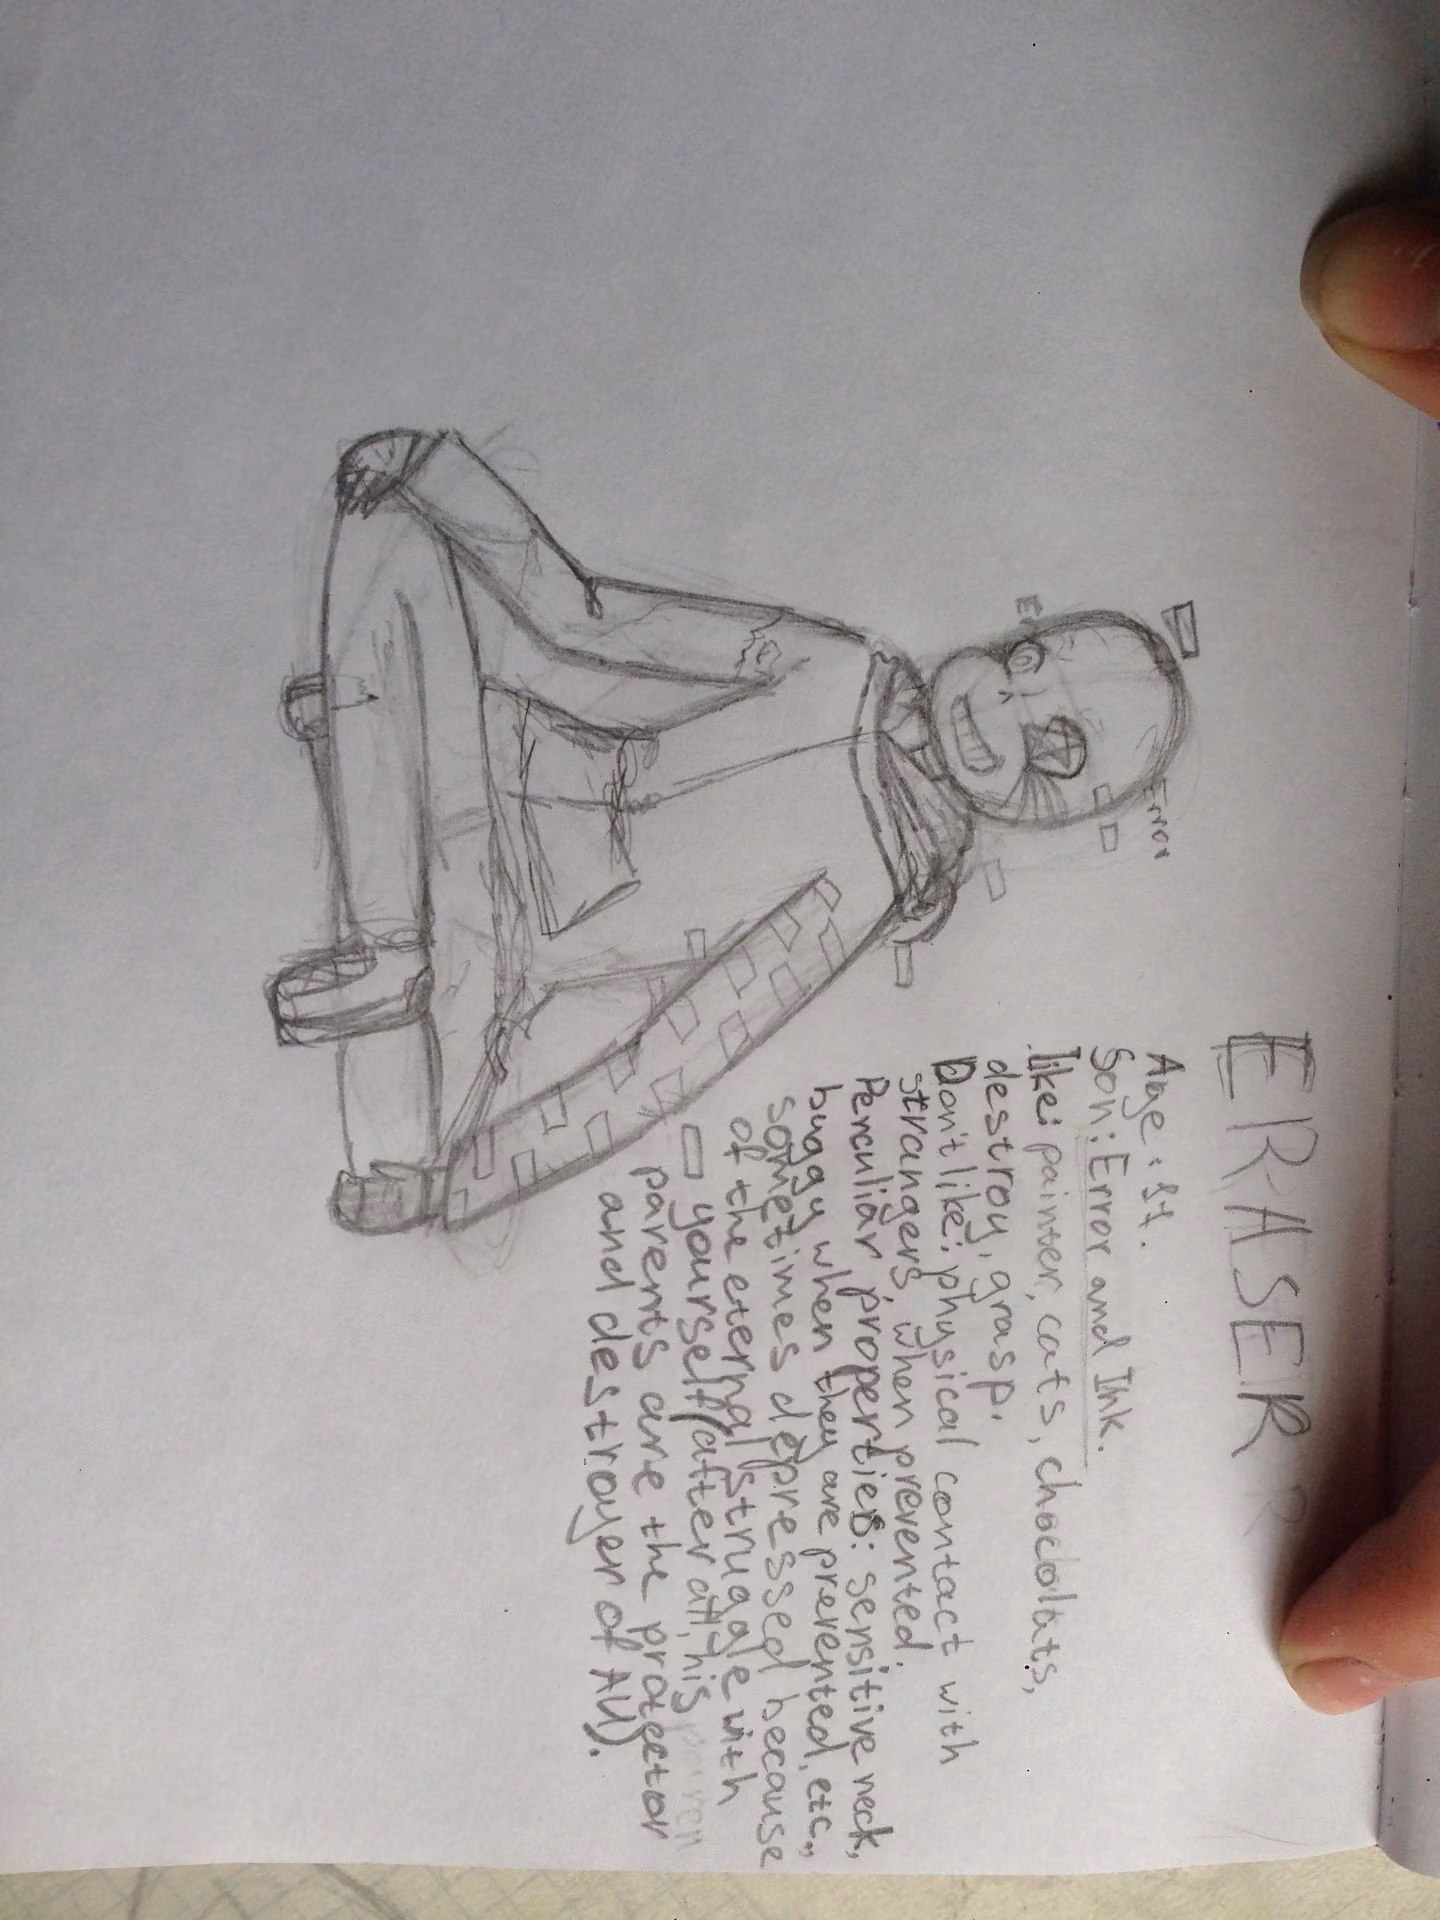 ERASER
Age: 17.
Son: Error and Ink.
like: painter, cats, chocolats,
destroy, grasp.
Don't like: physical contact with
strangers, when prevented.
Perculiar properties: sensitive neck,
buggy when they are prevented, etc.,
sometimes depressed because
of the eternal struggle with
yourself (after all, his
parents are the protector
and destroyer of AU).
Error